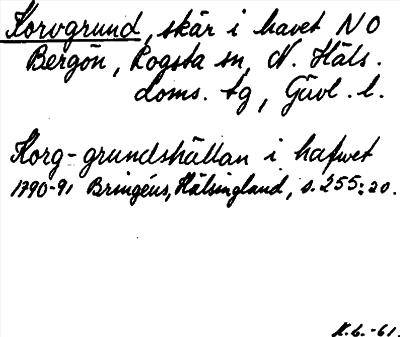 Korvgrund, skär i havet NO
Bergön, Rogsta sn, N. Häls.
doms. tg, Gävl. l.
Korg-grundshällan i hafwet
1790-91 Bringéus, Hälsingland, s. 255:20.
K.L. -61.